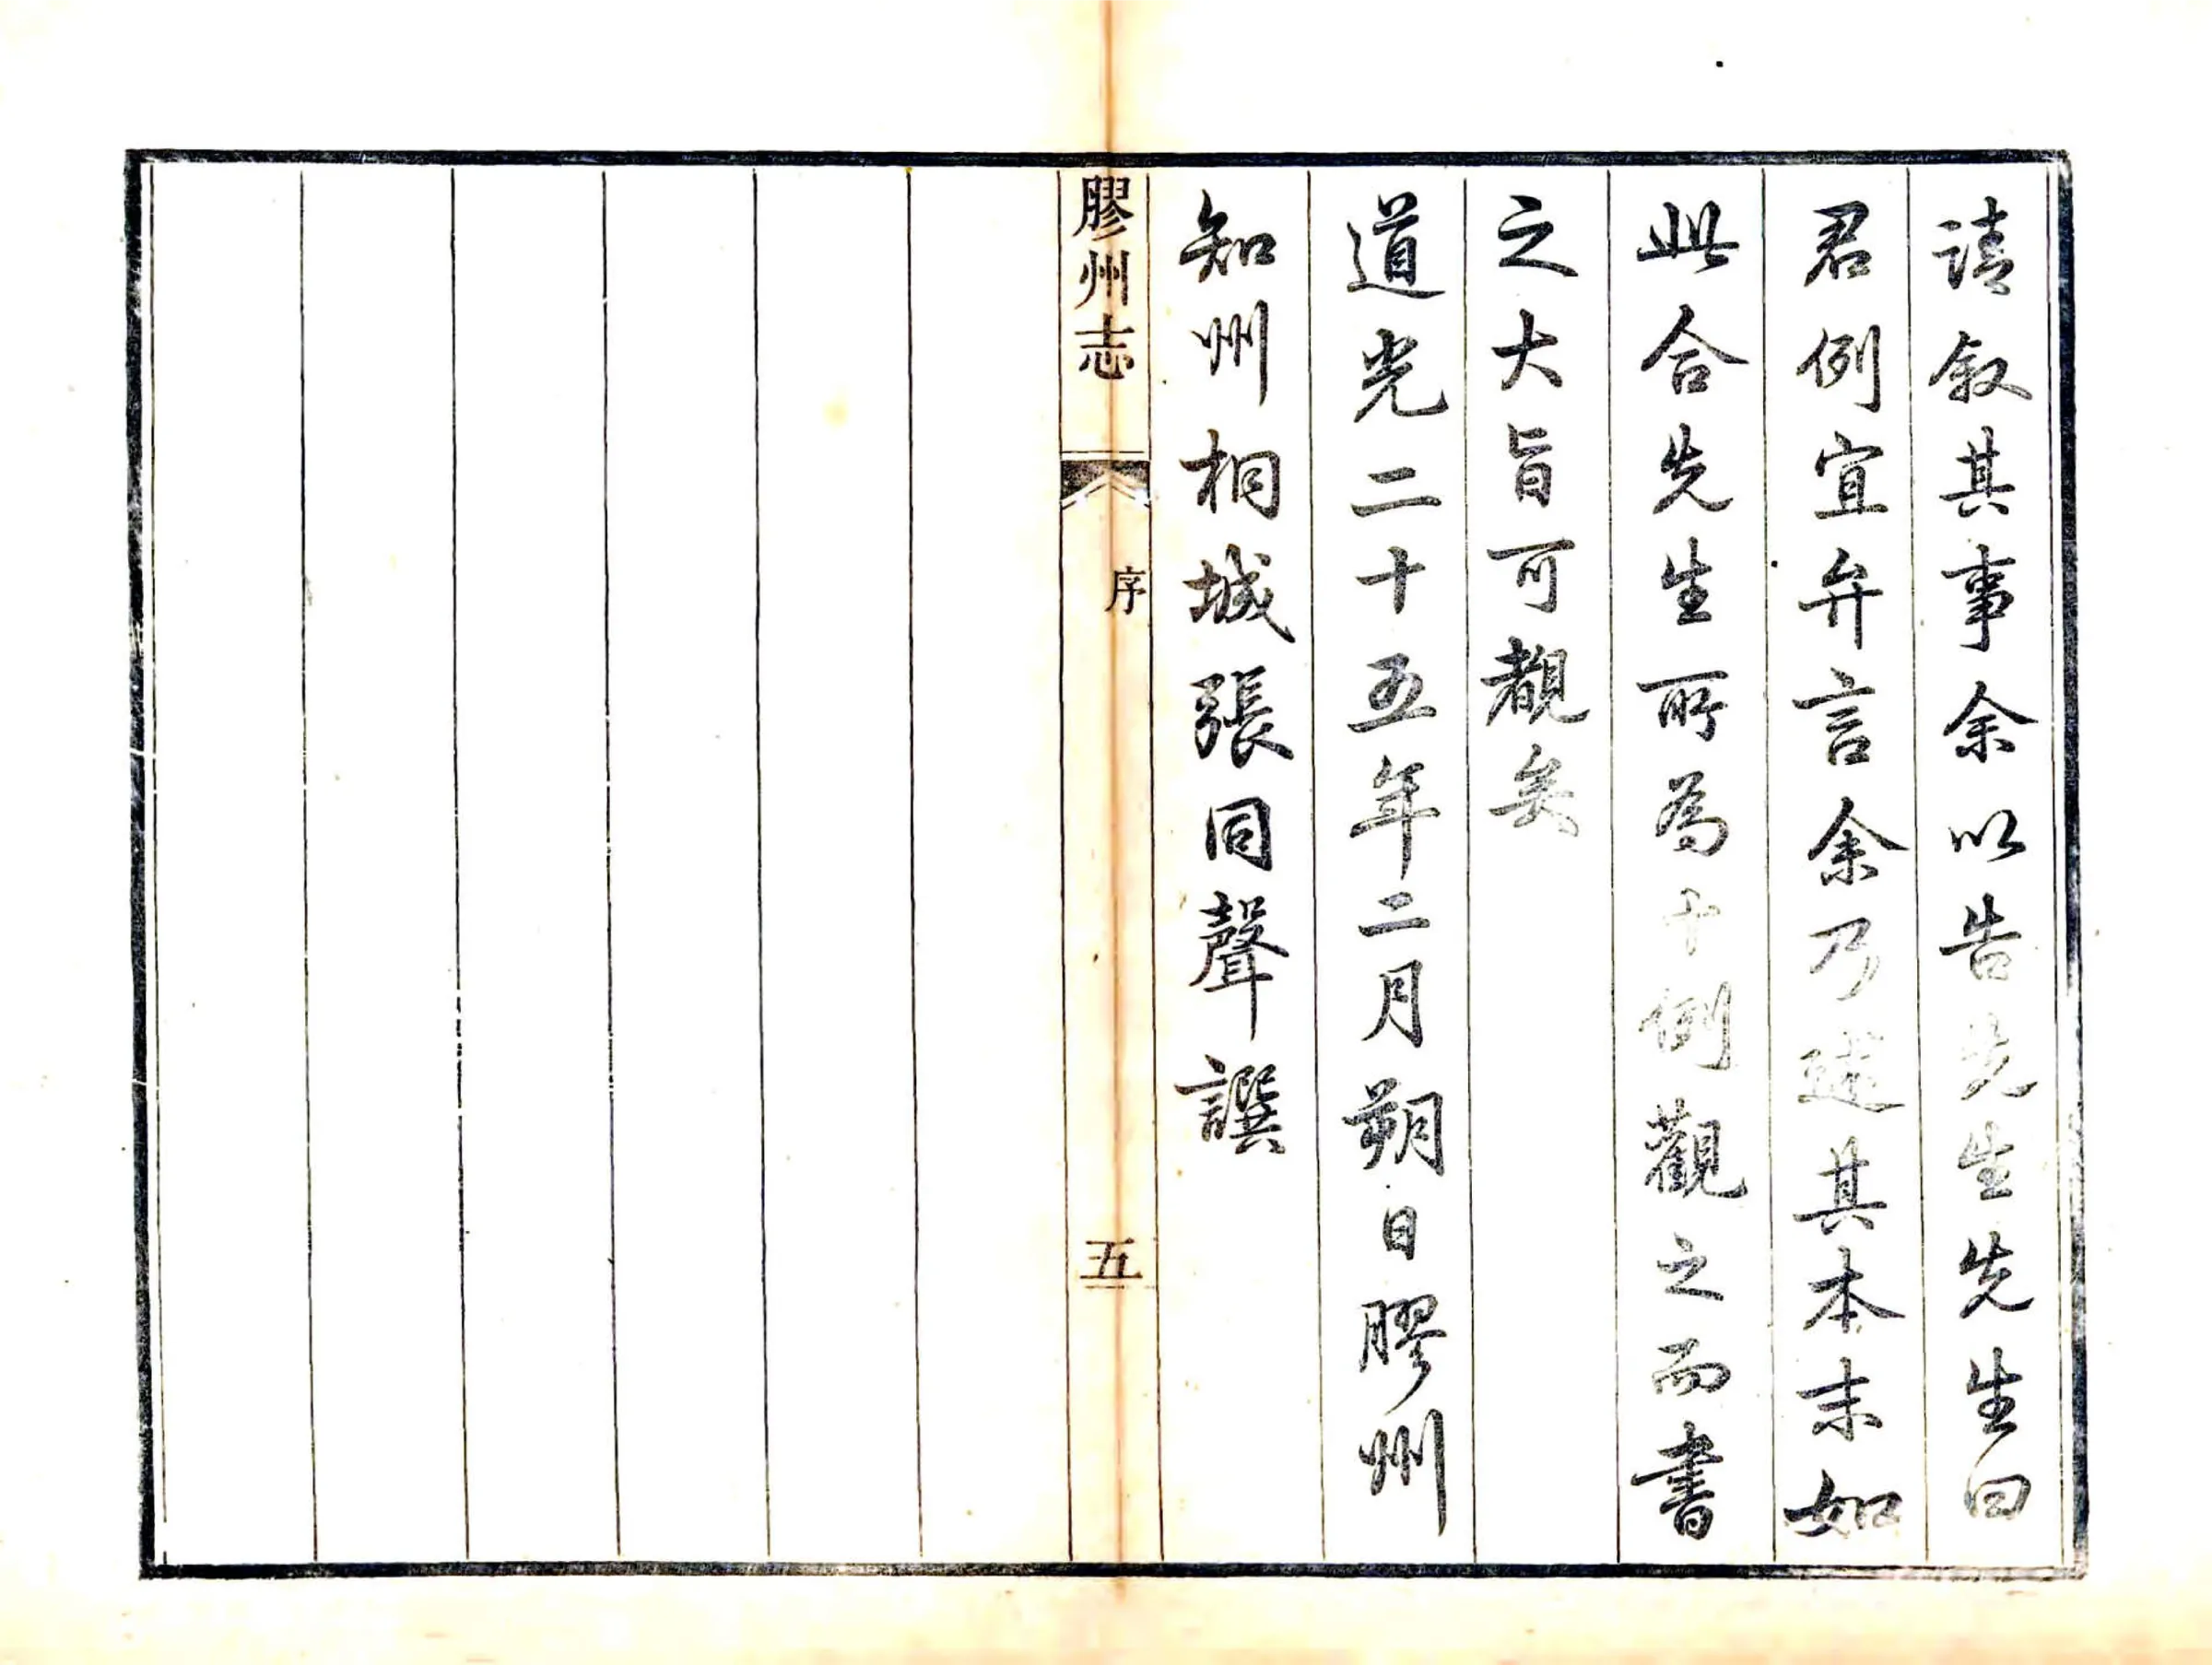 請叙其事余以告先生先生曰
君例宜弁言余乃述其本末如
此合先生所為十例觀之而書
之大旨可覩矣
道光二十五年二月朔日膠州
知州桐城張同聲譔
膠州志
序
五